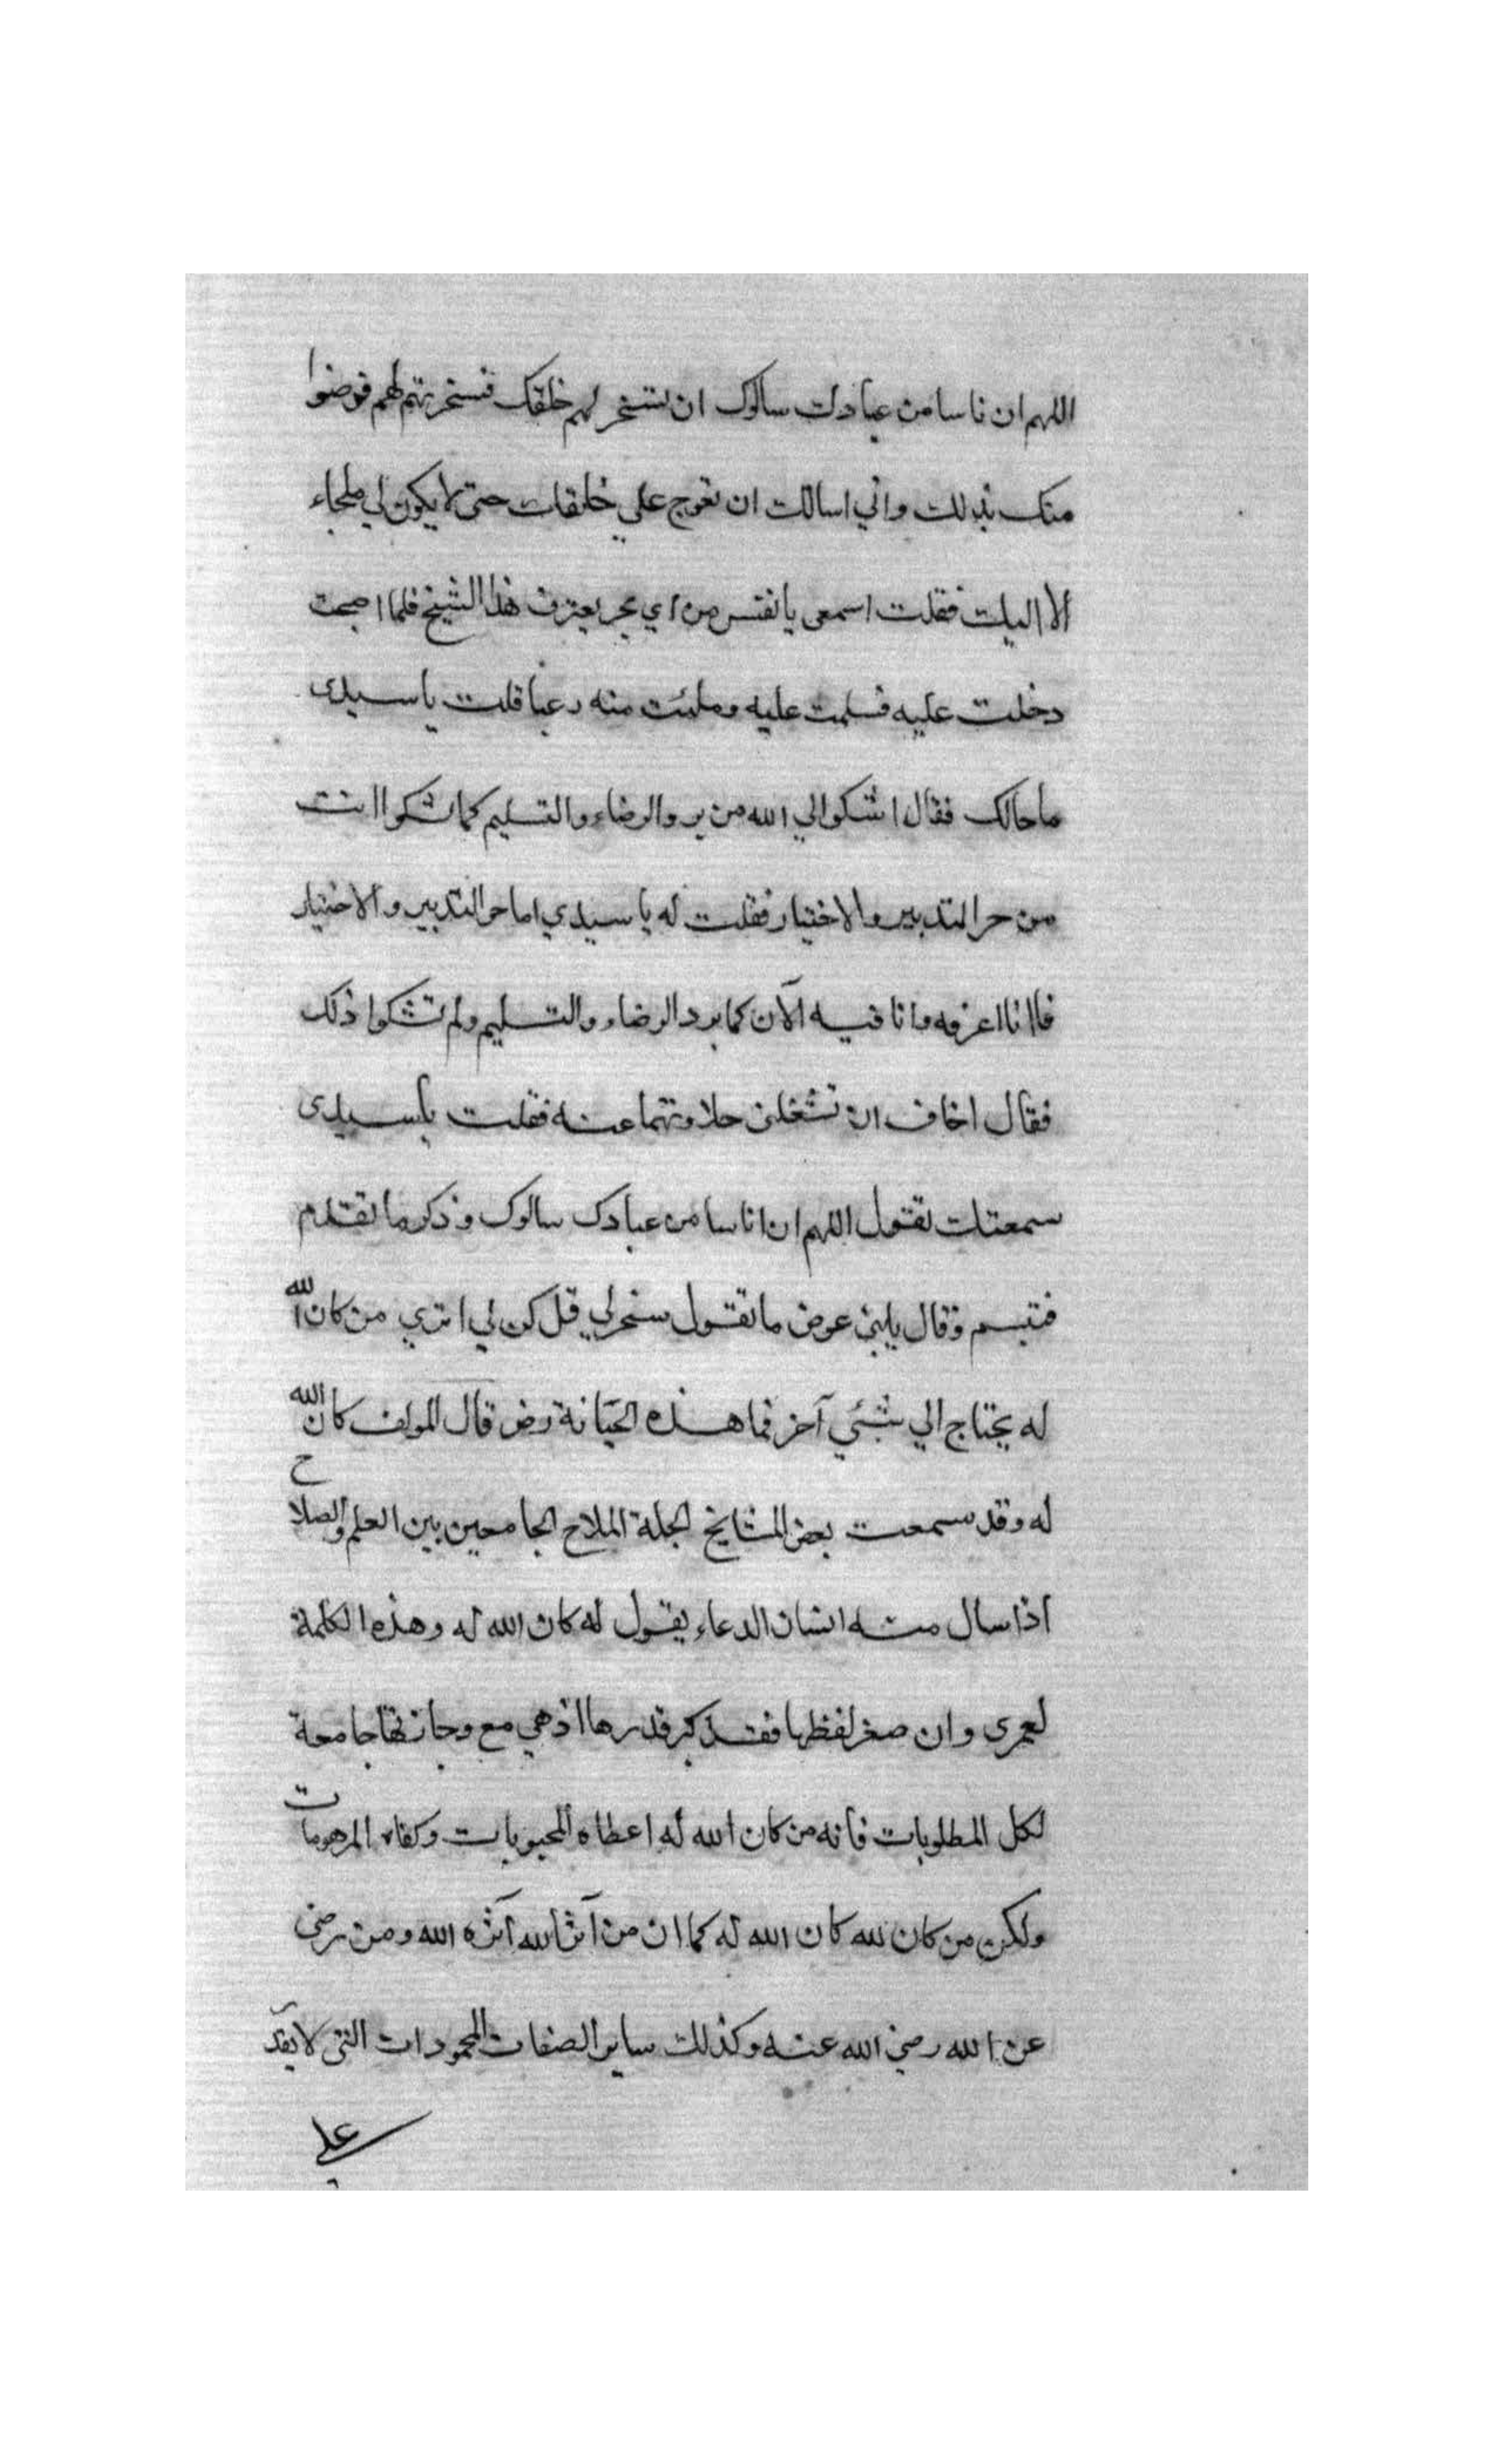 اللهم ان ناسا من عبادك سالوك ان تسخر لهم خلقك فسخرتهم لهم فرضوا
منك بذلك واني اسالك ان تعوج علي خلقك حتى لا يكون لي ملجاء
الا اليك فقلت اسمعى يا نفس من اي بحر يغترف هذا الشيخ فلما اصبحت
دخلت عليه فسلمت عليه وملئت منه رعبا قلت يا سيدى
ما حالك فقال اشكوا الي الله من برد الرضاء والتسليم كما تشكوا انت
من حر التدبير والاختيار فقلت له يا سيدي اما حر التدبير والاختيار
فانا اعرفه وانا فيه الآن كما برد الرضاء والتسليم ولم تشكوا ذلك
فقال اخاف ان تشغلنى حلاوتهما عنه فقلت يا سيدى
سمعتك تقول اللهم ان اناسا من عبادك سالوك وذكر ما تقدم
فتبسم وقال يابنى عوض ما تقول سخر لي قل كن لي اترى من كان الله
له يحتاج الي شئي آخر فما هذه الجبانة رض قال المولف كان الله
له وقد سمعت بعض المشايخ الجلة الملاح الجامعين بين العلم والصلاح
اذا سال منه انسان الدعاء يقول له كان الله له وهذه الكلمة
لعمرى وان صغر لفظها فقد كبر قدرها اذ هي مع وجازتها جامعة
لكل المطلوبات فانه من كان الله له اعطاه المحبوبات وكفاه المرهوبات
ولكن من كان لله كان الله له كما ان من آثر الله آثره الله ومن رضى
عن الله رضي الله عنه وكذلك ساير الصفات المحمودات التى لا يقد
علي